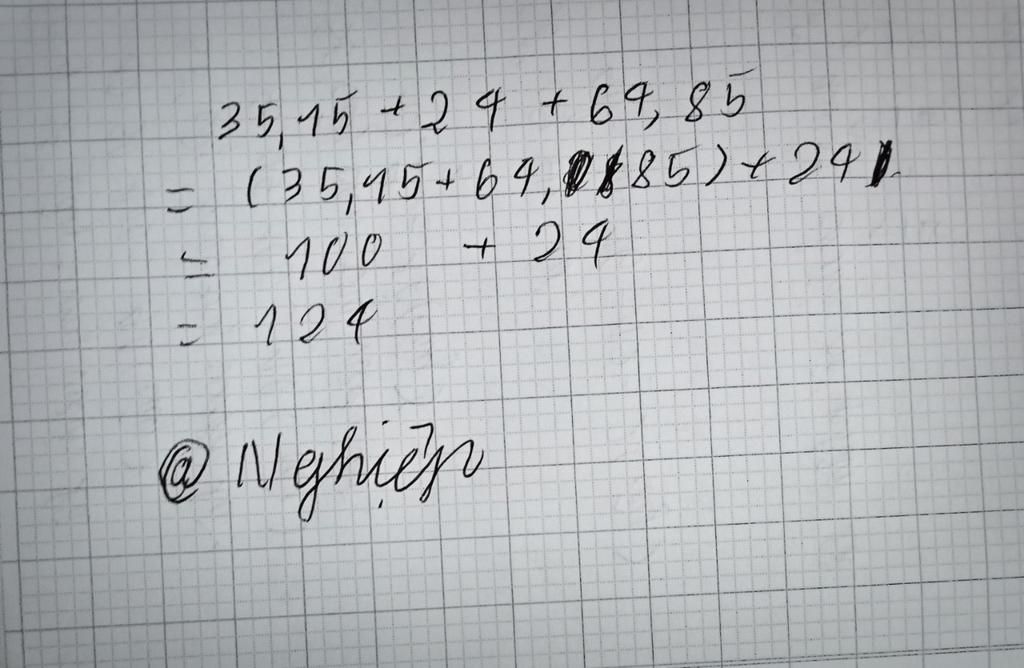 35,15 + 24 + 64,85
= (35,15 + 64,85) + 24
= 100 + 24
= 124
@ Nghiệp